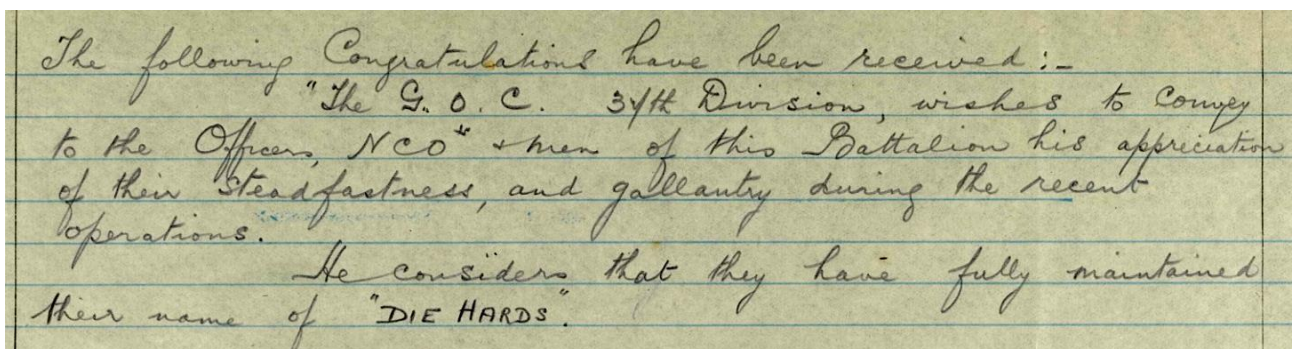 The following Congratulations have been received :-
"The G. O. C. Division, wishes to convey
to the Officers, NCO" & men of this Battalion his appreciation
of their steadfastness, and gallantry during the recent
operations.
He considers that they have fully maintained
their name of "DIE HARDS".